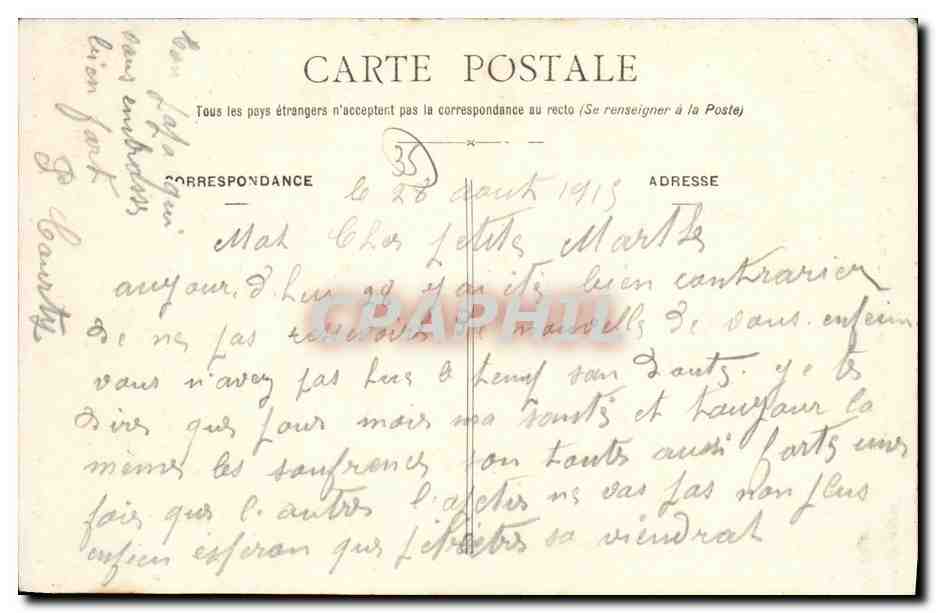 CARTE POSTALE
Tous les pays étrangers n'acceptent pas la correspondance au recto (Se renseigner à la Poste)
35
CORRESPONDANCE
ADRESSE
le 28 aout 1915
Mah Cher petite Marthe
aujour, d. hui 28 y ai ete bien contrarier
de ne pas recevoire de nouvelle de vous. enfein
vous n'avez pas hue le temp san doute. ye te
dires que pour mois ma santé et toujour la
mêmes les soufrences son toute aussi forte unes
fois que l. autres l. apetis ne vas pas non plus
enfien esperon que petietre sa viendrat
ton papa qui
vous embrasse
bien fort
P Courty
CPAPHIL